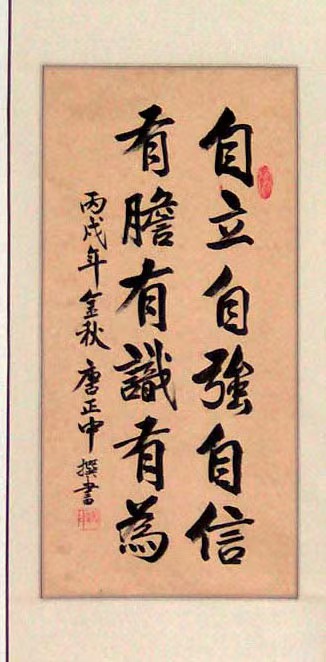 自立自強自信
有膽有識有為
丙戌年金秋唐正中撰書